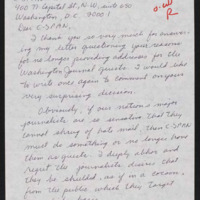 400 N Capitol St., N.W., suite 650
Washington, D.C. 20001
Dear C-SPAN,
I thank you so very much for answering
my letter questioning your reasons
for no longer providing addresses for the
Washington Journal guests. I would like
to write once again to comment on your
very surprising decision.
Obviously, if our nation's major
journalists are so sensitive that they
cannot of hate mail, then C-SPAN
must do something or no longer have
them as guests. I deeply abhor and
regret the journalists desires that
they be shielded, as if in a cocoon,
from the public which they target